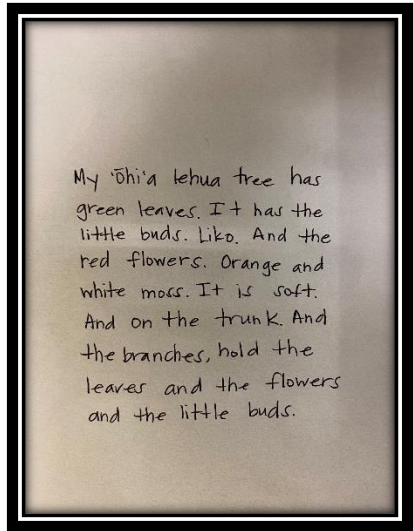 My 'ōhi'a lehua tree has
green leaves. It has the
little buds. Liko. And the
red flowers. Orange and
white moss. It is soft.
And on the trunk. And
the branches, hold the
leaves and the flowers
and the little buds.